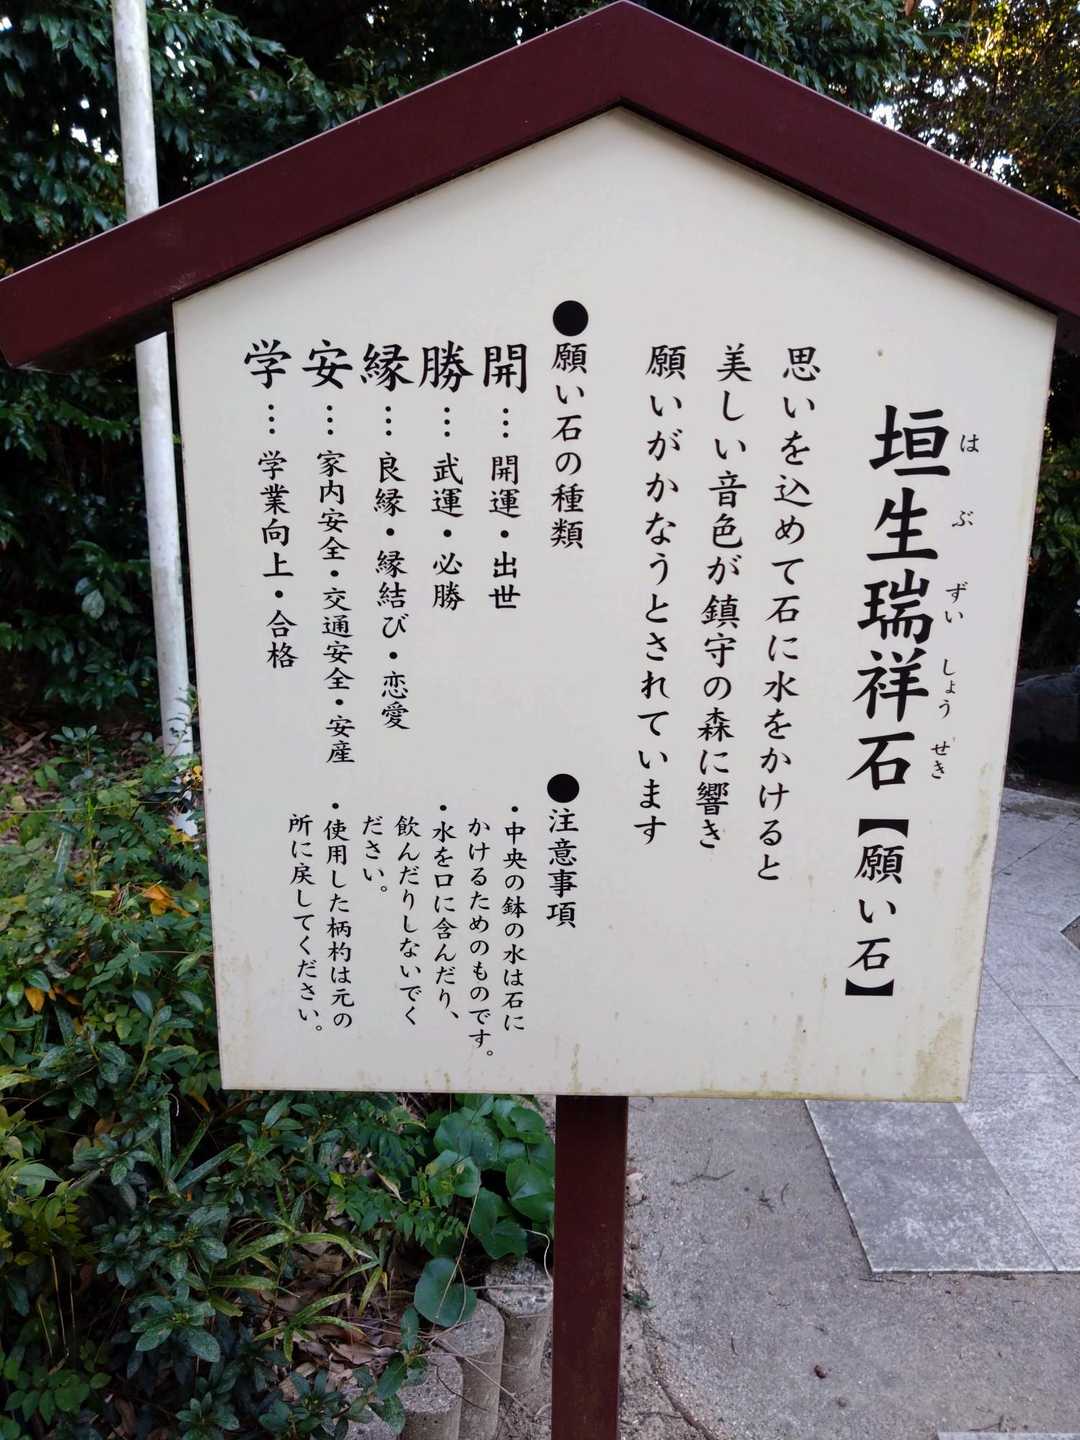 垣生瑞祥石【願い石】
はぶずいしょうせき
思いを込めて石に水をかけると
美しい音色が鎮守の森に響き
願いがかなうとされています
●願い石の種類
開…開運・出世
勝…武運・必勝
縁…良縁・縁結び・恋愛
安…家内安全・交通安全・安産
学…学業向上・合格
●注意事項
・中央の鉢の水は石に
かけるためのものです。
・水を口に含んだり、
飲んだりしないでく
ださい。
・使用した柄杓は元の
所に戻してください。